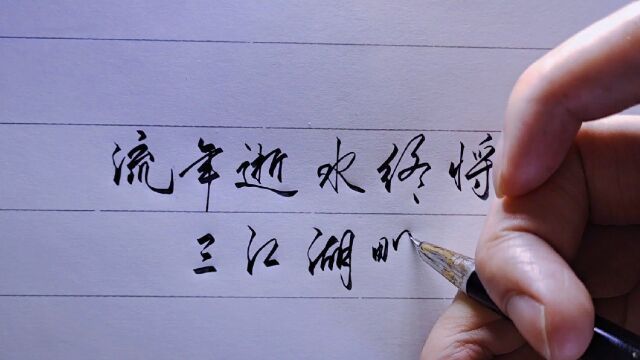 流年逝水终将
三江湖